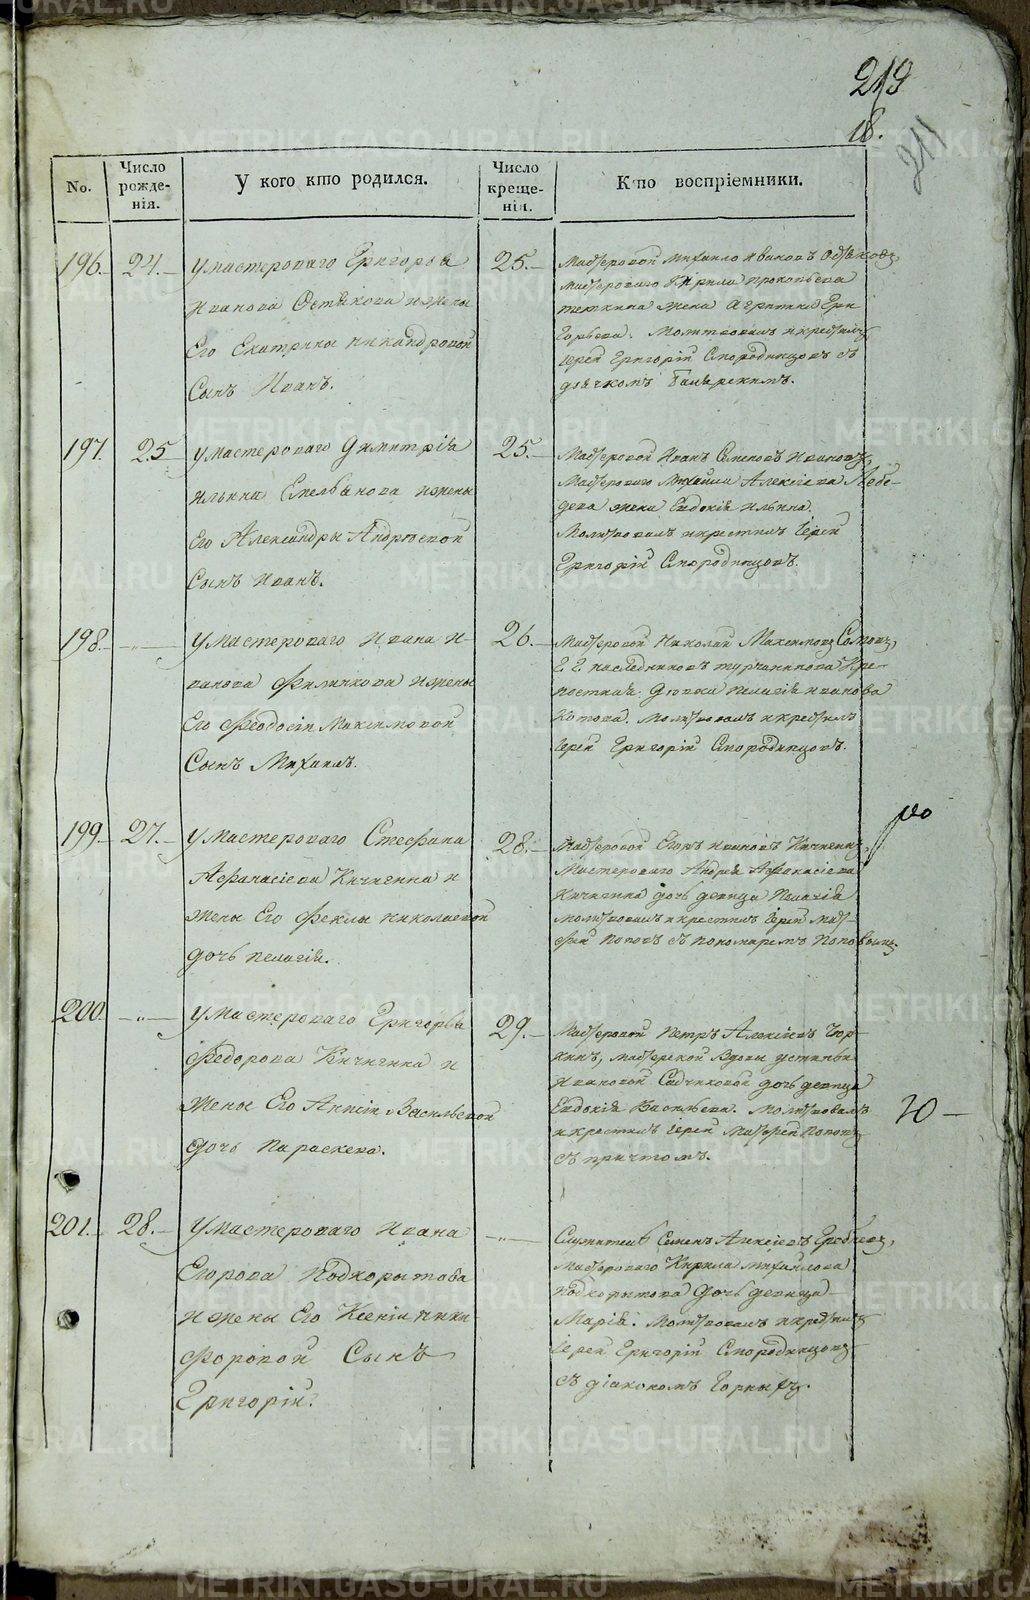 219
18.
211
No.
Число рожде-нія.
У кого кто родился.
Число креще-нія.
Кто воспріемники.
196. 24.
У мастероваго Григорья
Иванова Остякова и жены
Его Екатрины Никандровой
Сынъ Иванъ.
25.
Мастеровой Михайло Ивановъ
мастероваго Кирила Прокопьева
жена Агрипина Гри-
горьева. Молитвовалъ и крестилъ
Іерей Григорій Смородинцовъ съ
дьячкомъ
197. 25
У мастероваго Димитрія
Ильина Емельянова и жены
Его Александры Андреевой
Сынъ Иванъ.
25.
Мастеровой Иванъ Семеновъ Ивановъ,
Мастероваго Михайла Алексіева Лебе-
дева жена Евдокія Ильина.
Молитвовалъ и крестилъ Іерей
Григорій Смородинцовъ.
198. -"-
У мастероваго Ивана И-
ванова Филичкова и жены
Его Феодосіи Максимовой
Сынъ Михаилъ.
26.
Мастеровой Николай Максимовъ
Г. Г. наследниковъ Турчанинова Кре-
постная девка Пелагія Иванова
Котова. Молитвовалъ и крестилъ
Іерей Григорій Смородинцовъ.
199. 27.
У мастероваго Стефана
Афанасіева Кичигина и
жены Его Феклы Николаевой
дочь Пелагія.
28.
Мастеровой Егоръ Ивановъ Кичигинъ,
Мастероваго Андрея Афанасіева
Кичигина дочь девица Пелагія
Молитвовалъ и крестилъ Іерей Мат-
фей Поповъ съ пономаремъ Поповымъ
200. -"-
У мастероваго Григорья
Федорова Кичигина и
жены Его Аннсіи Васильевой
Дочь Параскева.
29.
Мастеровой Петръ Алексіевъ
мастерской вдовы Устиньи
Ивановой Садчиковой дочь девица
Евдокія Васильева. Молитвовалъ
и крестилъ Іерей Матфей Поповъ
съ причтомъ.
Ю
201. 28.
У мастероваго Ивана
Егорова Подкорытова
и жены Его Ксеніи Ники-
форовой Сынъ
Григорій.
-"-
Служитель Семенъ Алексіевъ
Мастероваго Кирила Михайлова
Подкорытова дочь девица
Марія. Молитвовалъ и крестилъ
Іерей Григорій Смородинцовъ
съ діакономъ Горныхъ.
METRIKI.GASO-URAL.RU